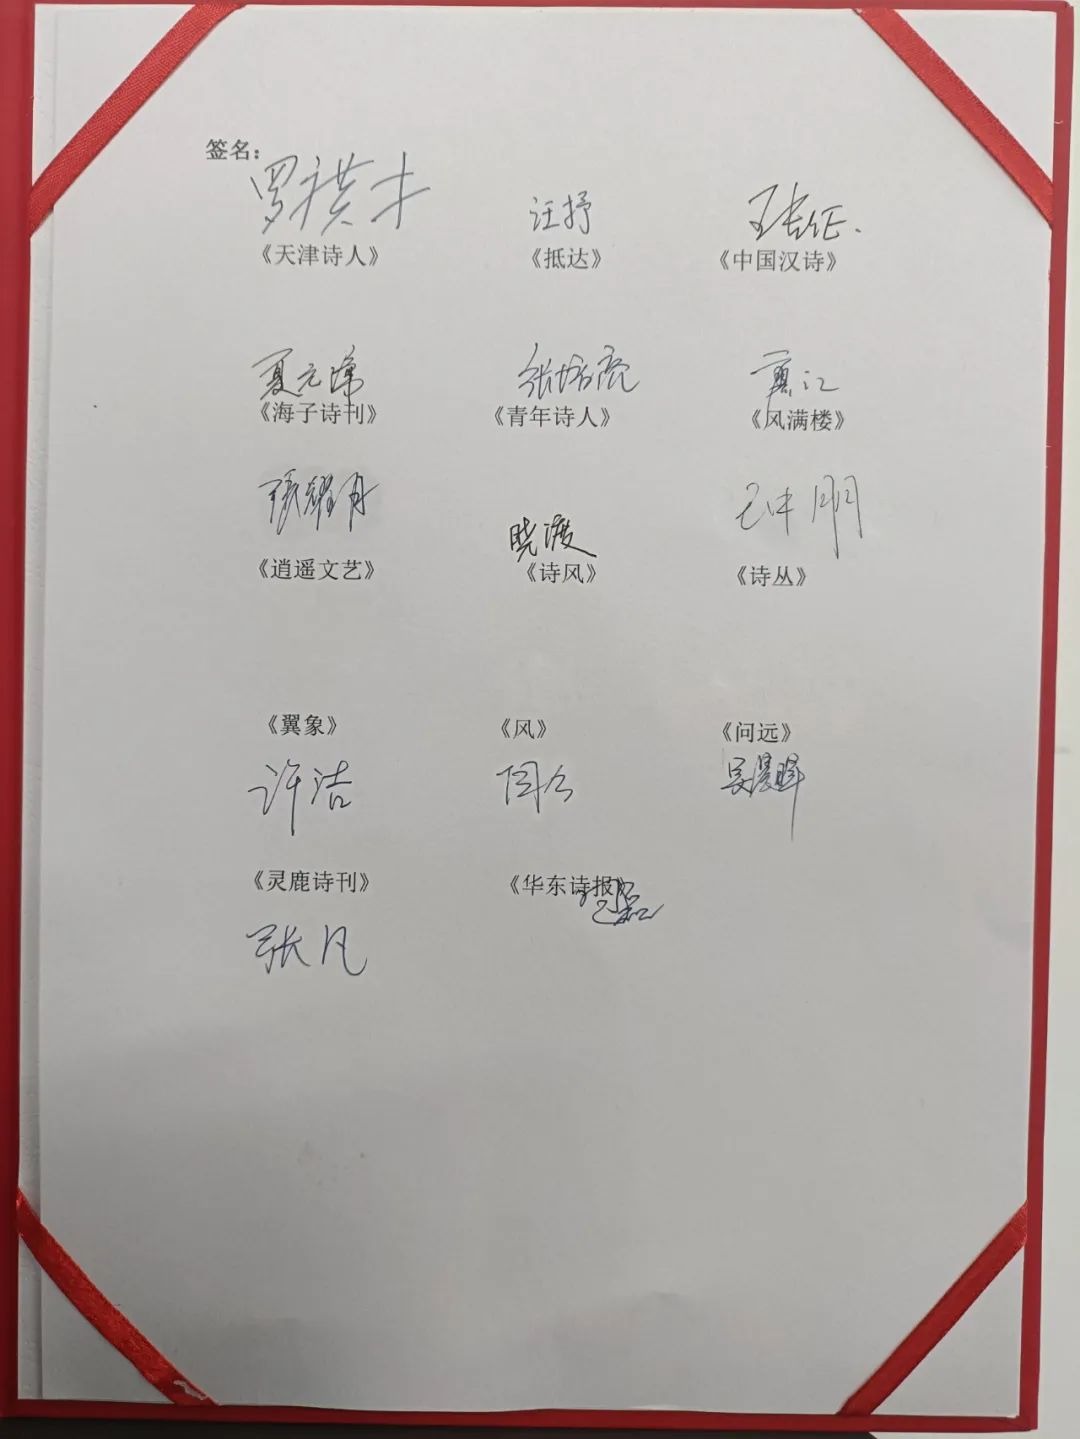 签名：
罗 才 汪抒 王长征.
《天津诗人》 《抵达》 《中国汉诗》
夏元 张 江
《海子诗刊》 《青年诗人》 《风满楼》
张耀月 晓渡
《逍遥文艺》 《诗风》 《诗丛》
《翼象》 《风》 《问远》
许洁 吴晨晖
《灵鹿诗刊》 《华东诗报》
张凡